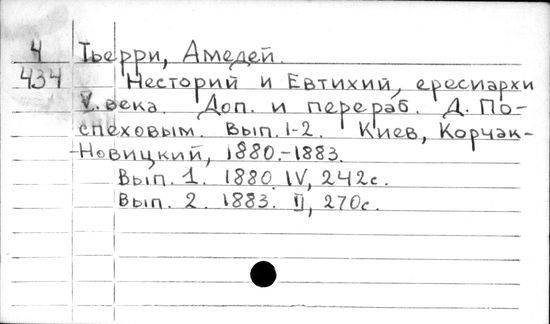 4 Тьерри, Амедей.
434 Несторий и Евтихий, ересиархи
V. века. Доп. и перераб. Д. По-
спеховым. Вып. 1-2. Киев, Корчак-
Новицкий, 1880.-1883.
Вып. 1. 1880. IV, 242с.
Вып. 2. 1883. II, 270с.